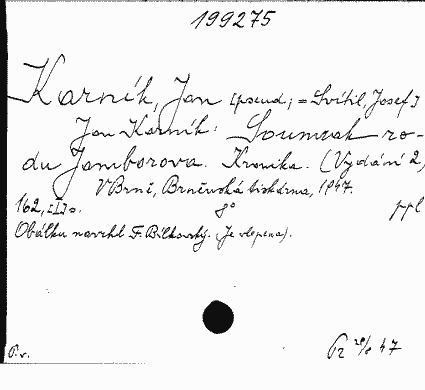 199275
Karník, Jan [pseud; = Svítil, Josef]
Jan Karník: Soumrak ro-
du Jamborova. Kronika. (Vydání 2,)
V Brně, Brněnská tiskárna, 1947.
162, [I] s. 8° ppl
Obálku navrhl F. Bílkovský. (Je vlepena).
P. v. Př 47